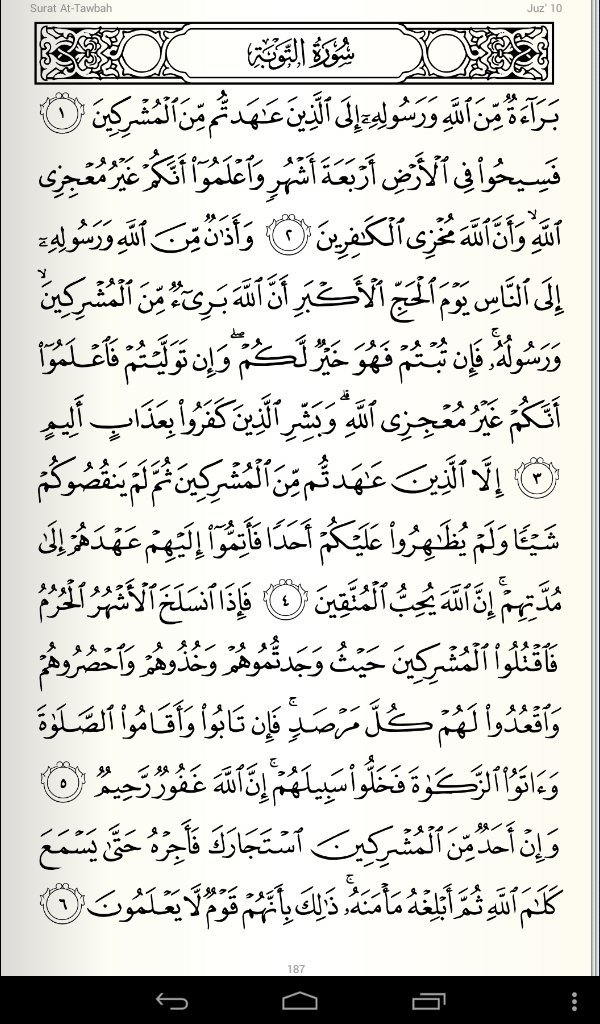 Surat At-Tawbah Juz' 10
سُورَةُ التَّوۡبَةِ
بَرَآءَةٞ مِّنَ ٱللَّهِ وَرَسُولِهِۦٓ إِلَى ٱلَّذِينَ عَٰهَدتُّم مِّنَ ٱلۡمُشۡرِكِينَ ١
فَسِيحُواْ فِي ٱلۡأَرۡضِ أَرۡبَعَةَ أَشۡهُرٖ وَٱعۡلَمُوٓاْ أَنَّكُمۡ غَيۡرُ مُعۡجِزِي
ٱللَّهِ وَأَنَّ ٱللَّهَ مُخۡزِي ٱلۡكَٰفِرِينَ ٢ وَأَذَٰنٞ مِّنَ ٱللَّهِ وَرَسُولِهِۦٓ
إِلَى ٱلنَّاسِ يَوۡمَ ٱلۡحَجِّ ٱلۡأَكۡبَرِ أَنَّ ٱللَّهَ بَرِيٓءٞ مِّنَ ٱلۡمُشۡرِكِينَۙ
وَرَسُولُهُۥۚ فَإِن تُبۡتُمۡ فَهُوَ خَيۡرٞ لَّكُمۡۖ وَإِن تَوَلَّيۡتُمۡ فَٱعۡلَمُوٓاْ
أَنَّكُمۡ غَيۡرُ مُعۡجِزِي ٱللَّهِۗ وَبَشِّرِ ٱلَّذِينَ كَفَرُواْ بِعَذَابٍ أَلِيمٍ
٣ إِلَّا ٱلَّذِينَ عَٰهَدتُّم مِّنَ ٱلۡمُشۡرِكِينَ ثُمَّ لَمۡ يَنقُصُوكُمۡ
شَيۡـٔٗا وَلَمۡ يُظَٰهِرُواْ عَلَيۡكُمۡ أَحَدٗا فَأَتِمُّوٓاْ إِلَيۡهِمۡ عَهۡدَهُمۡ إِلَىٰ
مُدَّتِهِمۡۚ إِنَّ ٱللَّهَ يُحِبُّ ٱلۡمُتَّقِينَ ٤ فَإِذَا ٱنسَلَخَ ٱلۡأَشۡهُرُ ٱلۡحُرُمُ
فَٱقۡتُلُواْ ٱلۡمُشۡرِكِينَ حَيۡثُ وَجَدتُّمُوهُمۡ وَخُذُوهُمۡ وَٱحۡصُرُوهُمۡ
وَٱقۡعُدُواْ لَهُمۡ كُلَّ مَرۡصَدٖۚ فَإِن تَابُواْ وَأَقَامُواْ ٱلصَّلَوٰةَ
وَءَاتَوُاْ ٱلزَّكَوٰةَ فَخَلُّواْ سَبِيلَهُمۡۚ إِنَّ ٱللَّهَ غَفُورٞ رَّحِيمٞ ٥
وَإِنۡ أَحَدٞ مِّنَ ٱلۡمُشۡرِكِينَ ٱسۡتَجَارَكَ فَأَجِرۡهُ حَتَّىٰ يَسۡمَعَ
كَلَٰمَ ٱللَّهِ ثُمَّ أَبۡلِغۡهُ مَأۡمَنَهُۥۚ ذَٰلِكَ بِأَنَّهُمۡ قَوۡمٞ لَّا يَعۡلَمُونَ ٦
187